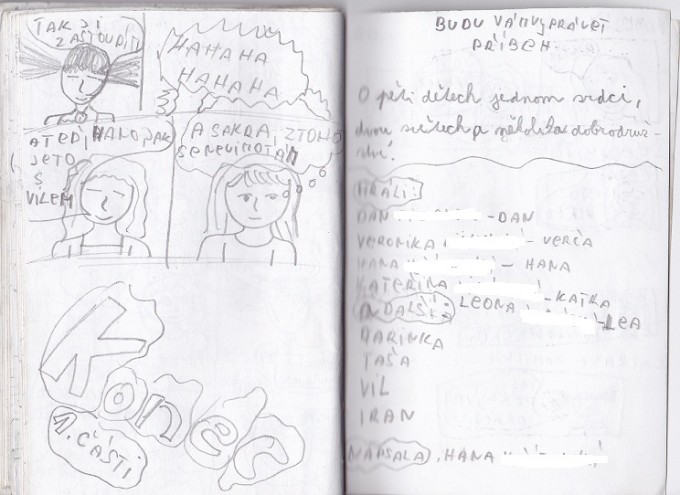 TAK SI
ZASTOUPIT
HAHAHA
HAHAHA
A TEĎ, HANO, JAK
JE TO
S
VILEM
A SAKRA, Z TOHO
SE NEVIMOTÁM
Konec
1. ČÁSTI
BUDU VÁM VYPRÁVĚT
PŘÍBĚH
O pěti dětech jednom srdci,
dvou světech a několika dobrodruž-
ství.
HRÁLI:
DAN - DAN
VERONIKA - VERČA
HANA - HANA
KATEŘINA - KATKA
LEONA - LEA
A DALŠÍ:
DARINKA
TAŠA
VIL
IRAN
NAPSALA: HANA